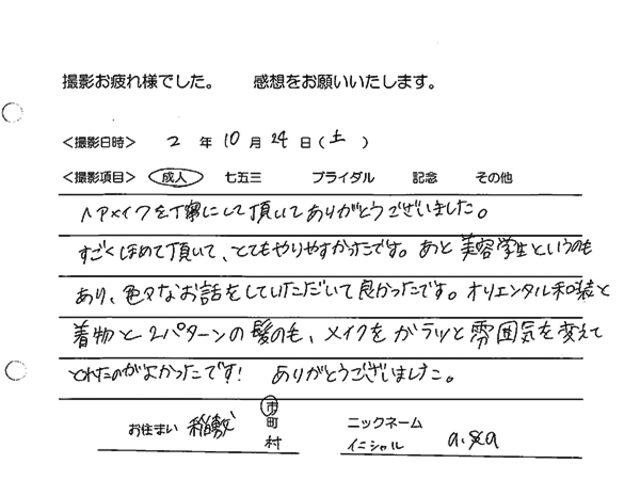 撮影お疲れ様でした。 感想をお願いいたします。
<撮影日時> 2 年 10 月 24 日(土)
<撮影項目> 成人 七五三 ブライダル 記念 その他
ヘアメイクを丁寧にして頂いてありがとうございました。
すごくほめて頂いて、とてもやりやすかったです。あと美容学生というのも
あり、色々なお話をしていただいて良かったです。オリエンタル和装と
着物と2パターンの髪のも、メイクをガラッと雰囲気を変えて
とれたのがよかったです! ありがとうございました。
お住まい 稲敷 市 町 村 ニックネーム イニシャル